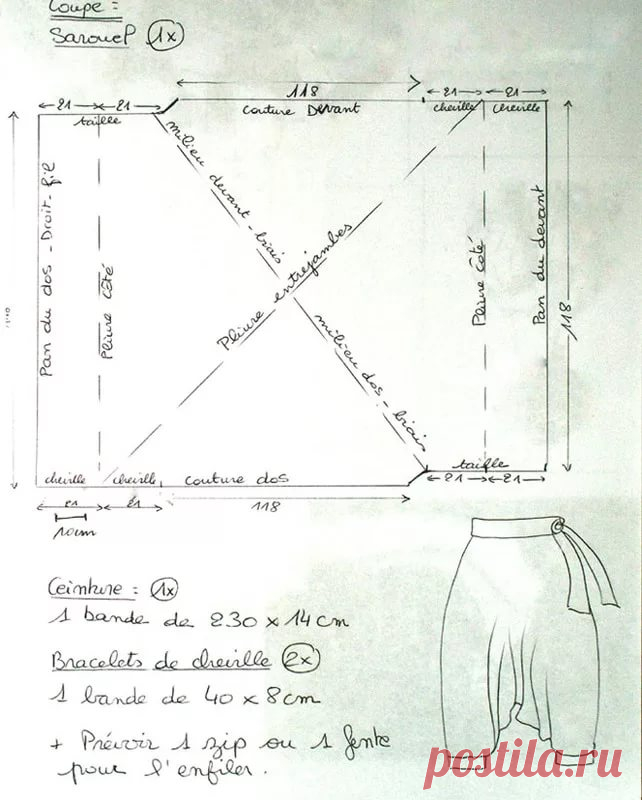 Coupe :
Sarouel 1x
118
21 21
couture Devant
21 21
taille
cheville cheville
milieu devant - biais
Pan du dos - Droit-fil
Pliure côté
Pliure entrejambes
milieu dos - biais
Pliure côté
Pan du devant
118
taille
cheville cheville
couture dos
21 21
21 21
118
10cm
Ceinture : 1x
1 bande de 230 x 14 cm
Bracelets de cheville 2x
1 bande de 40 x 8 cm
+ Prévoir 1 zip ou 1 fente
pour l'enfiler.
postila.ru